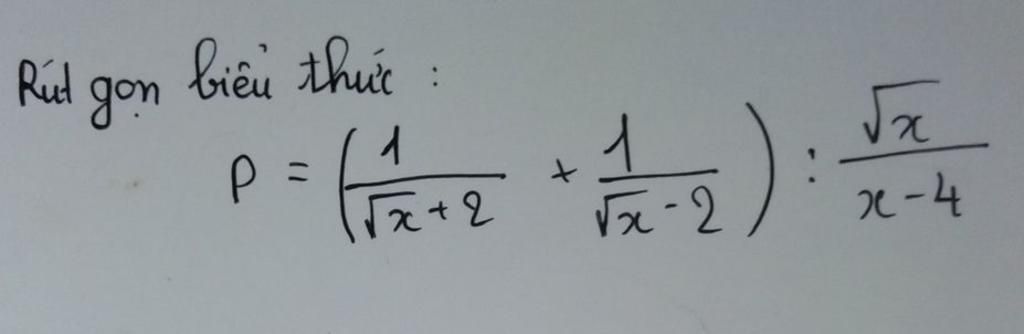 Rút gọn biểu thức :
P = ( 1/(√x + 2) + 1/(√x - 2) ) : √x/(x - 4)